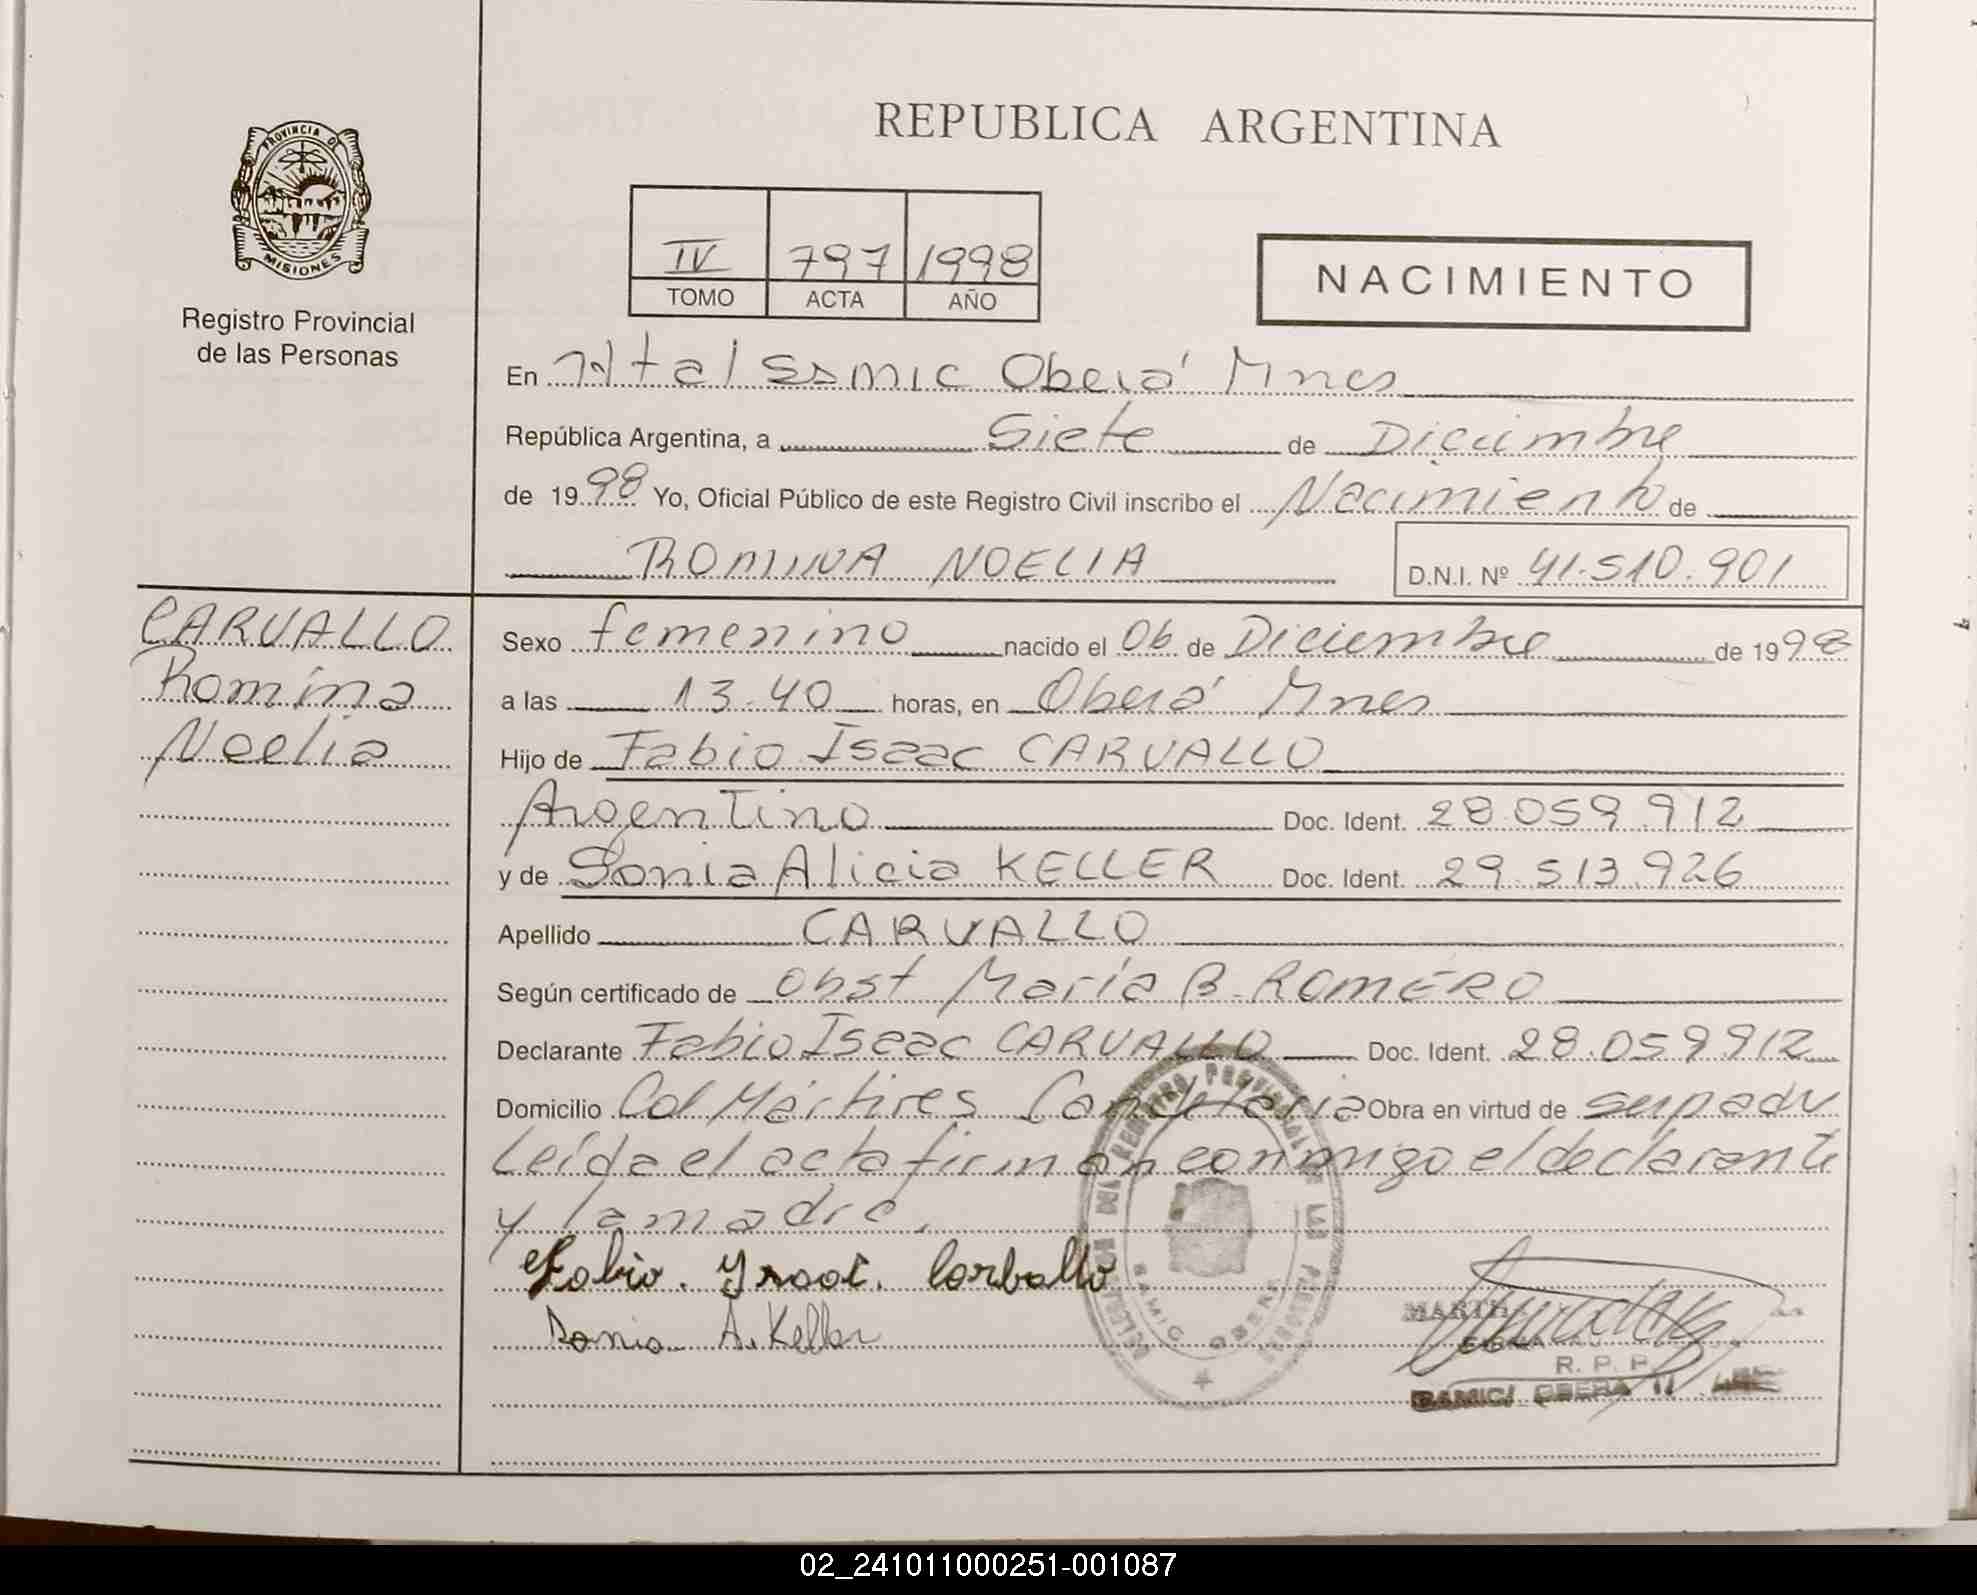 REPUBLICA ARGENTINA
PROVINCIA DE MISIONES
Registro Provincial
de las Personas
IV 797 1998
TOMO ACTA AÑO
NACIMIENTO
En Htal Ssmic Oberá Mnes
República Argentina, a Siete de Diciembre
de 1998 Yo, Oficial Público de este Registro Civil inscribo el Nacimiento de
ROMINA NOELIA D.N.I. Nº 41.510.901
CARVALLO
Romina
Noelia
Sexo femenino nacido el 06 de Diciembre de 1998
a las 13.40 horas, en Oberá Mnes
Hijo de Fabio Isaac CARVALLO
Argentino Doc. Ident. 28.059.912
y de Sonia Alicia KELLER Doc. Ident. 29.513.926
Apellido CARVALLO
Según certificado de Obst María B. ROMERO
Declarante Fabio Isaac CARVALLO Doc. Ident. 28.059.912
Domicilio Col Mártires Candelaria Obra en virtud de
Leída el acta firman conmigo el declarante
y la madre.
Fabio. Ysaac. Carballo
Sonia A. Keller
DEL REGISTRO PROVINCIAL DE LAS PERSONAS
SAMIC OBERA
R. P. P.
SAMIC OBERA
02_241011000251-001087